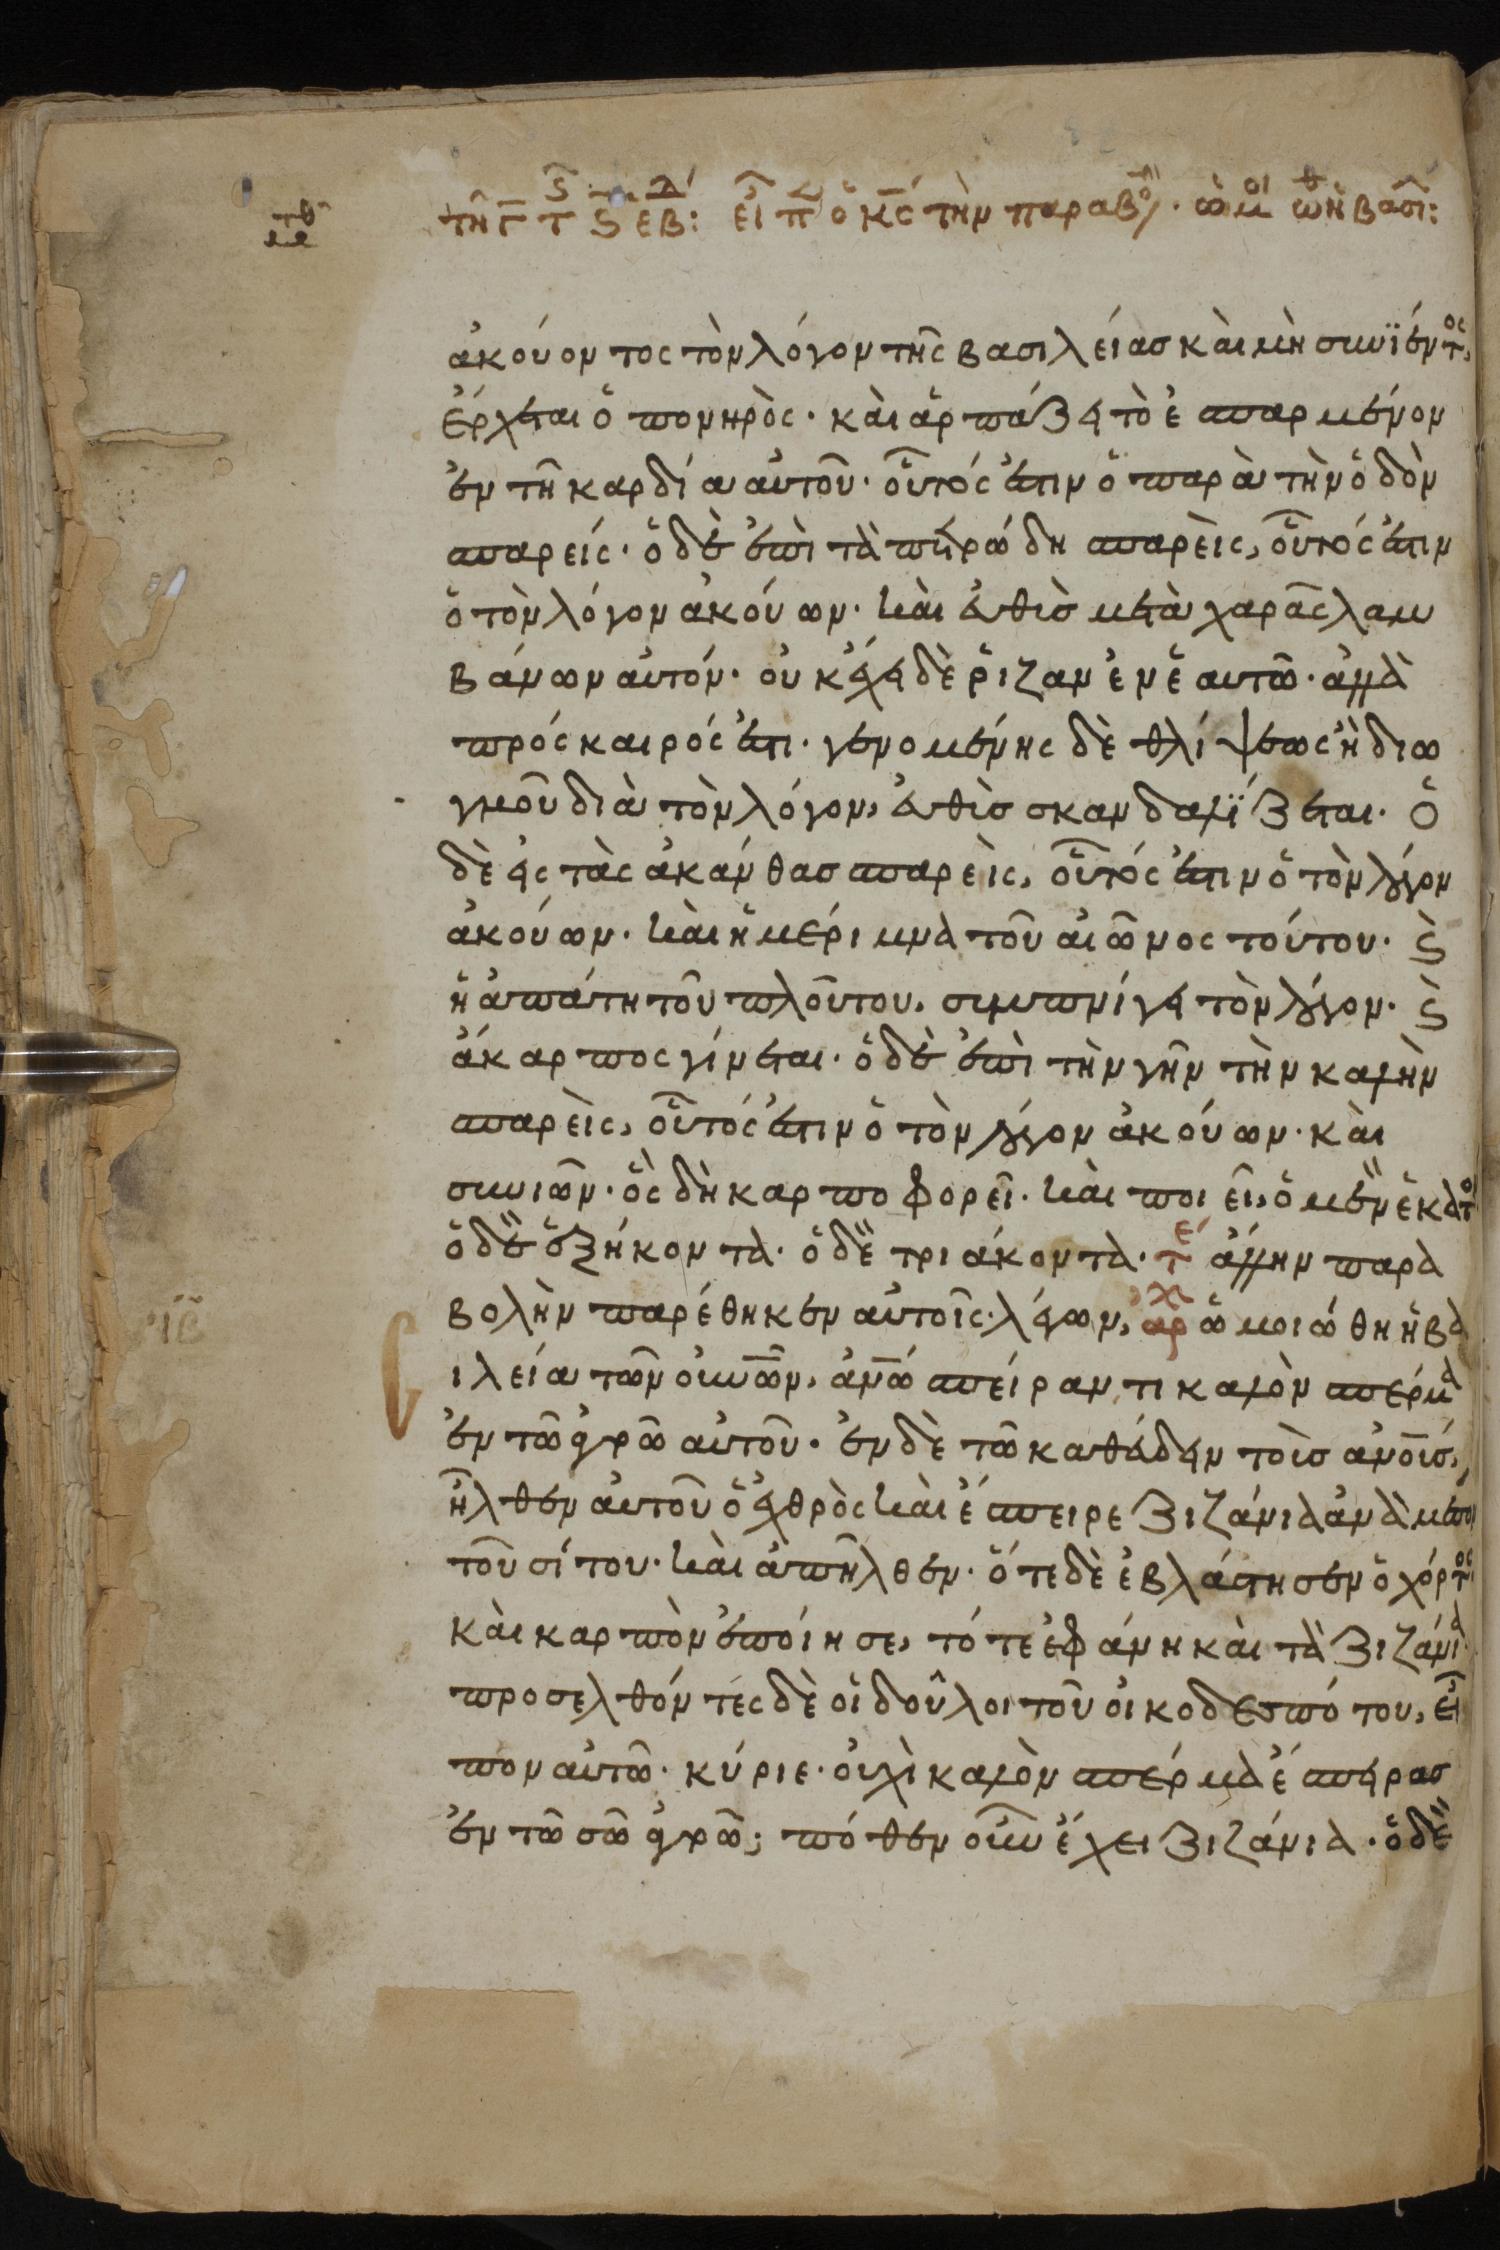 τῆ Γ τ ς εβ: εἶπ ὁ κς τὴν παραβολ. ὡμοιώθη ἡ βασι:
ἀκούοντος τὸν λόγον τῆς βασιλείασ καὶ μὴ συνϊέντος,
ἔρχεται ὁ πονηρὸς· καὶ ἁρπάζει τὸ ἐσπαρμένον
ἐν τῆ καρδία αὐτοῦ· οὗτός ἐστιν ὁ παρὰ τὴν ὁδὸν
σπαρείς· ὁ δὲ ἐπὶ τὰ πετρώδη σπαρεὶς, οὗτός ἐστιν
ὁ τὸν λόγον ἀκούων· καὶ εὐθὺσ μετὰ χαρᾶς λαμ
βάνων αὐτόν· οὐκ ἔχει δὲ ῥίζαν ἐν ἑαυτῶ· ἀλλὰ
πρόσκαιρός ἐστι· γενομένης δὲ θλίψεως ἢ διω
γμοῦ διὰ τὸν λόγον, εὐθὺσ σκανδαλΐζεται· ὁ
δὲ εἰς τὰς ἀκάνθασ σπαρεὶς, οὗτός ἐστιν ὁ τὸν λόγον
ἀκούων· καὶ ἡ μέριμνα τοῦ αἰῶνος τούτου· ϗ
ἡ ἀπάτη τοῦ πλούτου, συμπνίγει τὸν λόγον· ϗ
ἄκαρπος γίνεται· ὁ δὲ ἐπὶ τὴν γῆν τὴν καλὴν
σπαρεὶς, οὗτός ἐστιν ὁ τὸν λόγον ἀκούων· καὶ
συνιῶν· ὃς δὴ καρποφορεῖ· καὶ ποιεῖ, ὁ μὲν ἑκατὸ
ὁ δὲ ἑξήκοντα· ὁ δὲ τριάκοντα· τε ἄλλην παρα
βολὴν παρέθηκεν αὐτοῖς· λέγων, αρχ ὡμοιώθη ἡ βα
ιλεία τῶν οὐνῶν, ἀνῶ σπείραντι καλὸν σπέρμα
ἐν τῶ ἀγρῶ αὐτοῦ· ἐν δὲ τῶ καθεύδειν τοὺσ ἀνοῦσ,
ἦλθεν αὐτοῦ ὁ ἐχθρὸς καὶ ἔσπειρε ζιζάνια ἀνὰ μέσον
τοῦ σίτου· καὶ ἀπῆλθεν· ὅτε δὲ ἐβλάστησεν ὁ χόρτος
καὶ καρπὸν ἐποίησε, τότε ἐφάνη καὶ τὰ ζιζάνια
προσελθόντες δὲ οἱ δοῦλοι τοῦ οἰκοδεσπότου, εἶ
πον αὐτῶ· κύριε· οὐχὶ καλὸν σπέρμα ἔσπειρασ
ἐν τῶ σῶ ἀγρῶ; πόθεν οὖν ἔχει ζιζάνια· ὁ δὲ